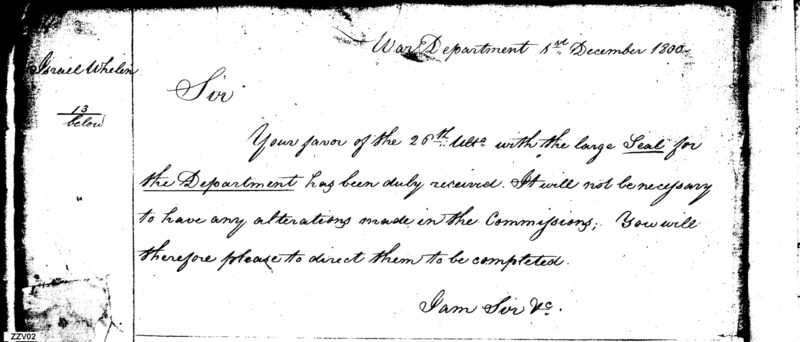 War Department 1st December 1800
Israel Whelen
13
below
Sir
Your favor of the 26th Ulto. with the large Seal for
the Department has been duly received. It will not be necessary
to have any alterations made in the Commissions; You will
therefore please to direct them to be completed.
I am Sir &c.
ZZV02